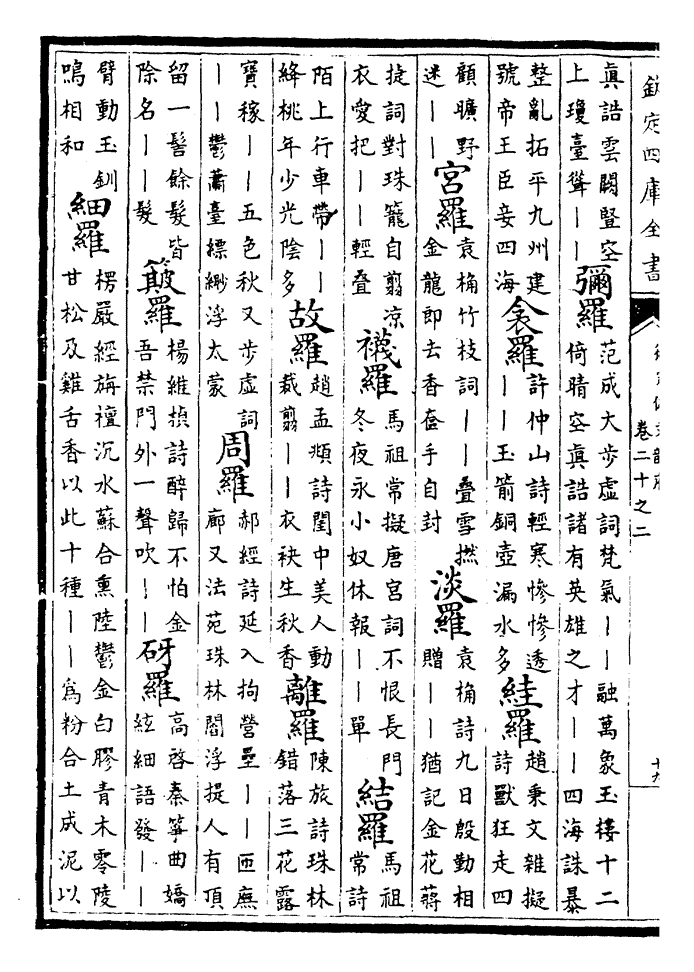 欽定四庫全書
御定佩文韻府
卷二十之二
十九
真誥雲闕豎空
上瓊臺聳——
彌羅
范成大步虛詞梵氣——融萬象玉樓十二
倚晴空真誥諸有英雄之才——四海誅暴
整亂拓平九州建
號帝王臣妾四海
衾羅
許仲山詩輕寒慘慘透
——玉箭銅壺漏水多
絓羅
趙秉文雜擬
詩獸狂走四
顧曠野
迷——
宮羅
袁桷竹枝詞——疊雪撚
金龍即去香奩手自封
淡羅
袁桷詩九日殷勤相
贈——猶記金花蔣
捷詞對珠籠自翦凉
衣愛把——輕疊
襪羅
馬祖常擬唐宮詞不恨長門
冬夜永小奴休報——單
結羅
馬祖
常詩
陌上行車帶——
絳桃年少光陰多
故羅
趙孟頫詩閨中美人動
裁翦——衣袂生秋香
離羅
陳旅詩珠林
錯落三花露
寶稼——五色秋又步虛詞
——鬱蕭臺縹緲浮太蒙
周羅
郝經詩延入拘營壘——匝廡
廊又法苑珠林閻浮提人有頂
留一髻餘髮皆
除名——髮
簸羅
楊維楨詩醉歸不怕金
吾禁門外一聲吹——
砑羅
高啓秦箏曲嬌
絃細語發——
臂動玉釧
鳴相和
細羅
楞嚴經旃檀沉水蘇合熏陸鬱金白膠青木零陵
甘松及雞舌香以此十種——為粉合土成泥以